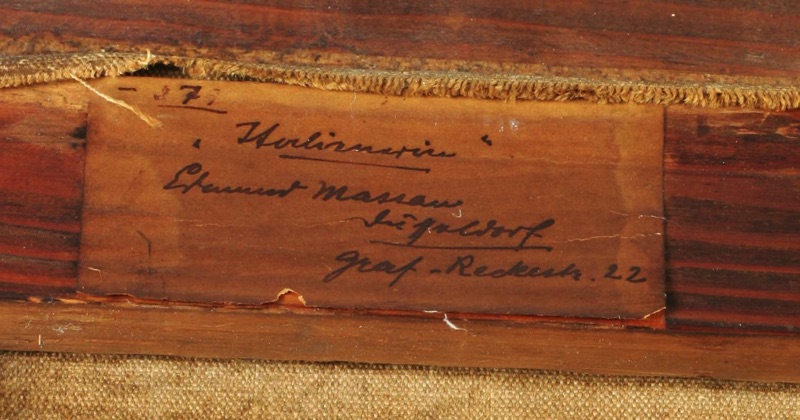 7.
„Italienerin“
Edmund Massau
Düsseldorf
Graf-Reckestr. 22